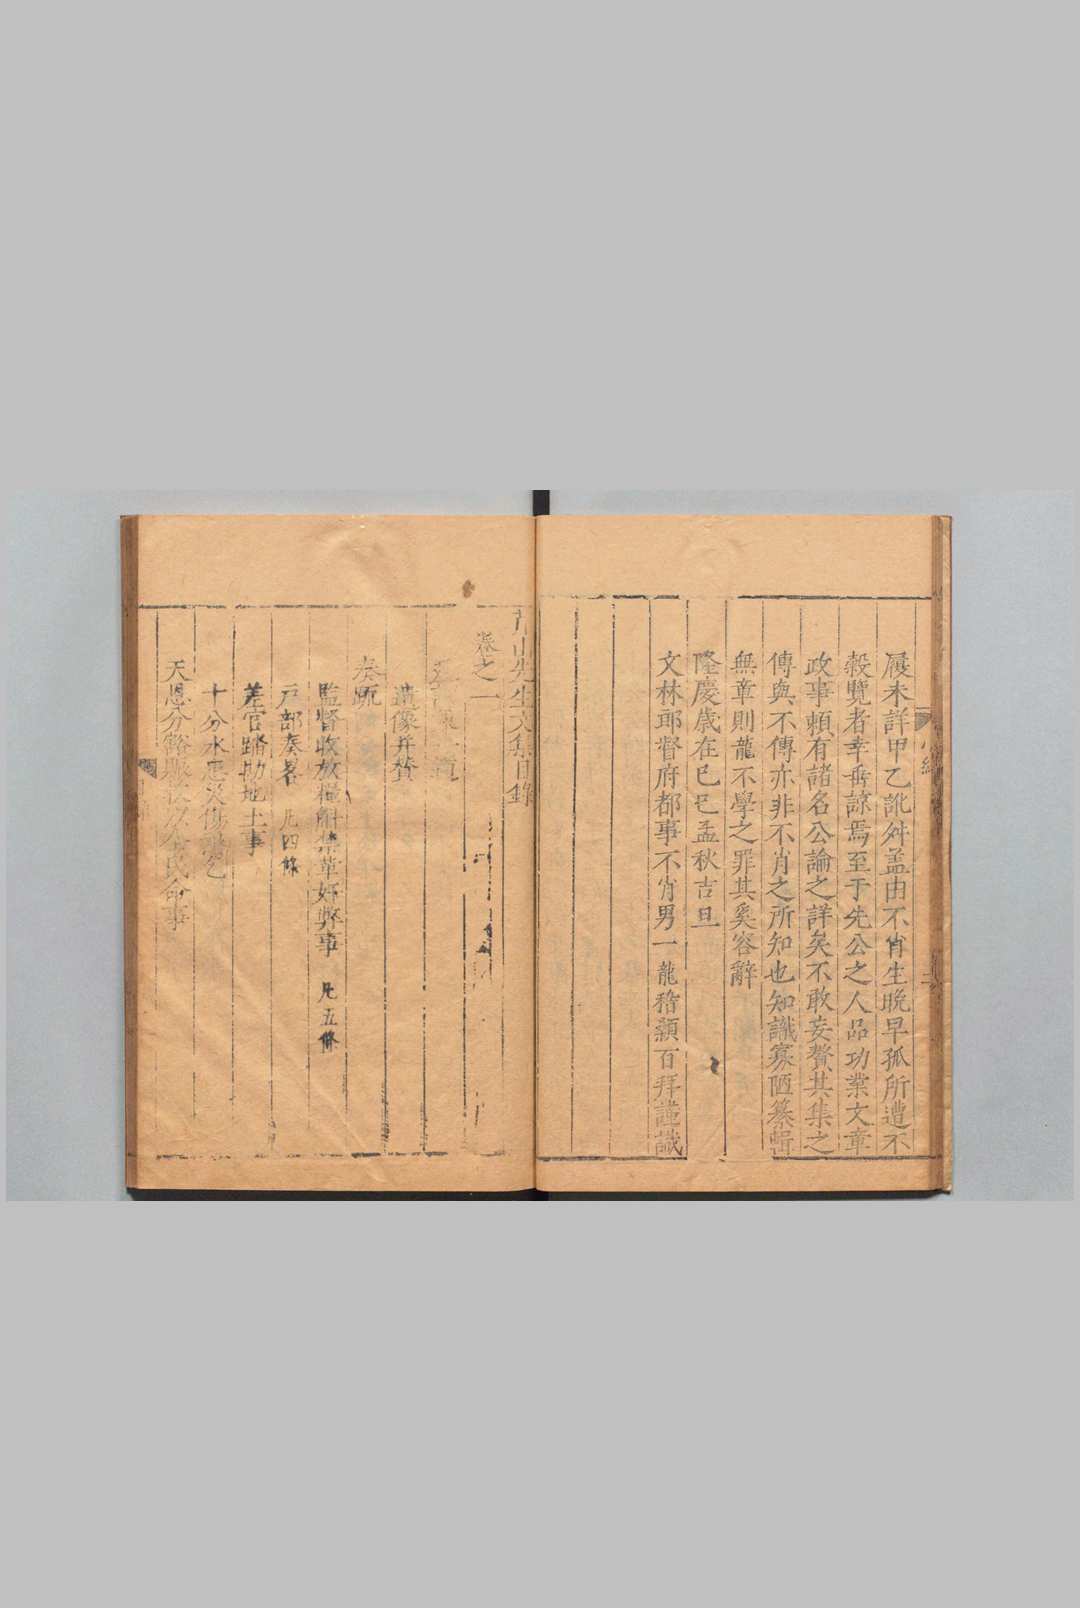 履未詳甲乙訛舛盖由不肖生晚早孤所遭不
穀覽者幸垂諒焉至于先公之人品功業文章
政事賴有諸名公論之詳矣不敢妄贅其集之
傳與不傳亦非不肖之所知也知識寡陋纂輯
無章則龍不學之罪其奚容辭
隆慶歳在己巳孟秋吉旦
文林郎督府都事不肖男一龍稽顙百拜謹識
山先生文集目錄
卷之一
遺像并贊
奏疏
監督收放糧斛集革奸弊事 凡五條
戶部奏畧 凡四條
差官踏勘地土事
十分水患災傷懇乞
天恩分豁賑以全民命事